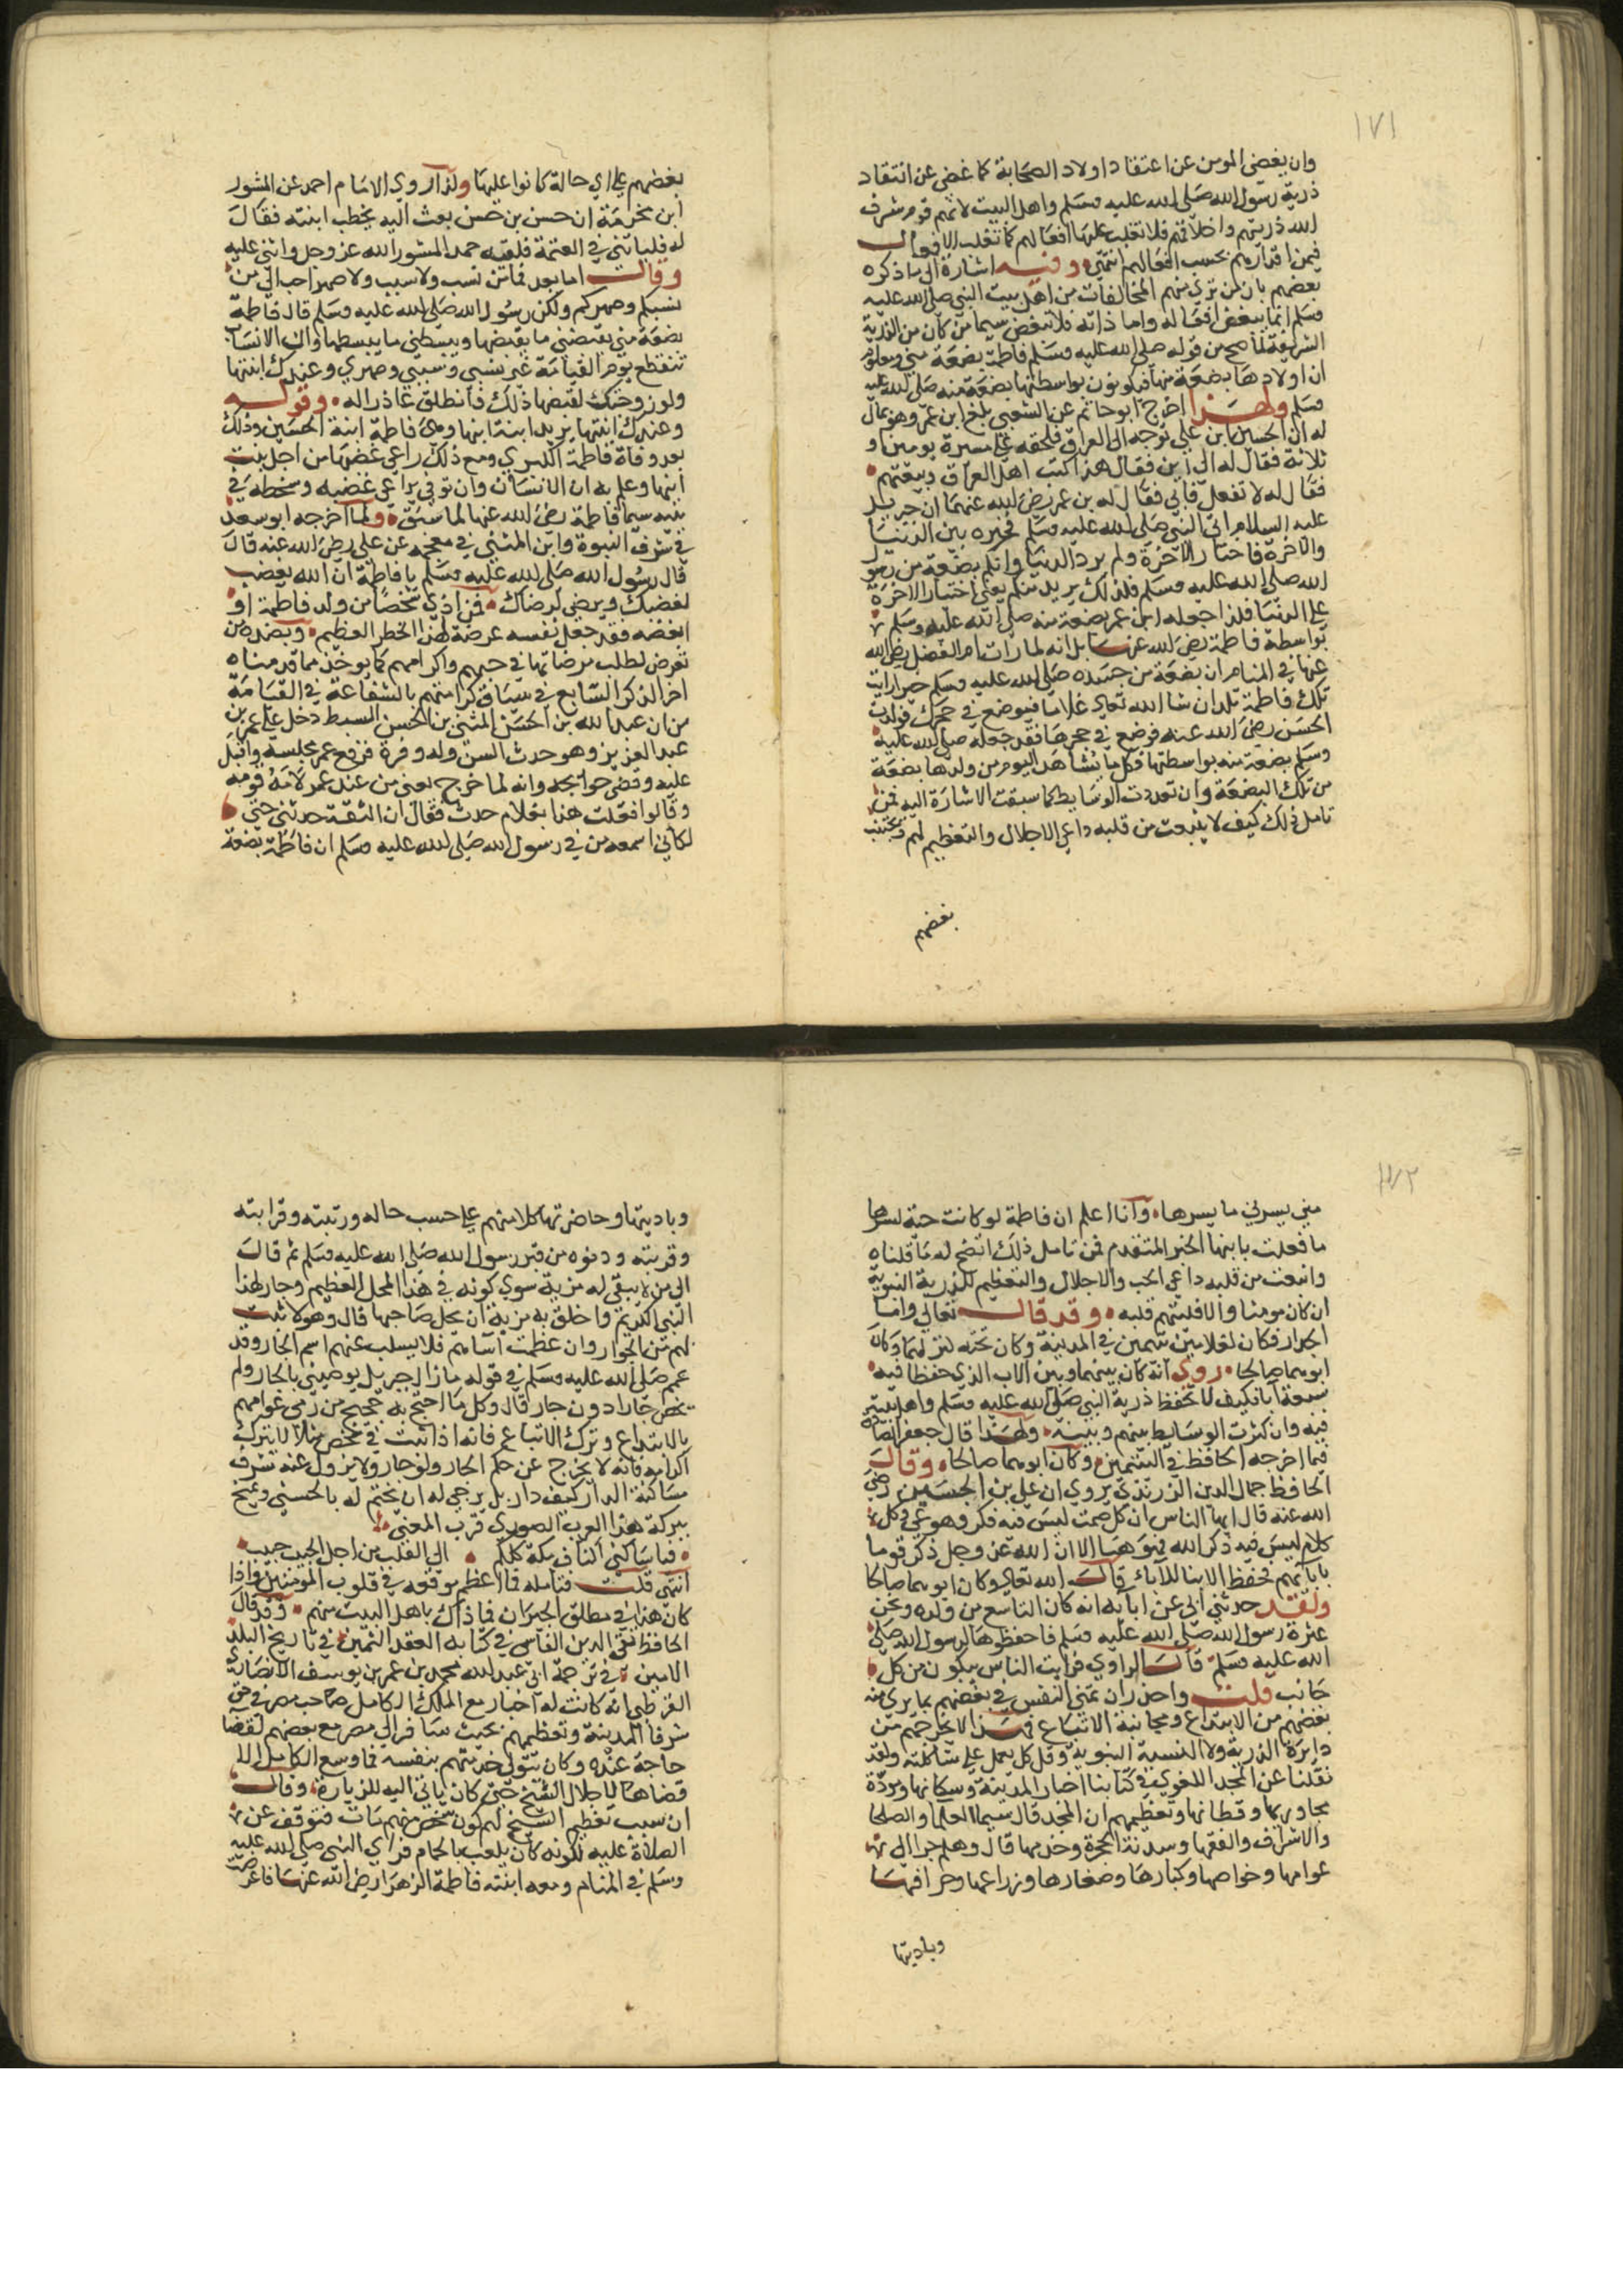 ١٧١
وان يغضي المومن عن اعتقاد اولاد الصحابة كما غضي عن انتقاد
ذرية رسول الله صلى الله عليه وسلم واهل البيت لانهم قوم شرف
الله ذريتهم واخلاقهم فلا تغلب عليها افعالهم كما تغلب الافعال
فيمن اقدارهم بحسب افعالهم انتهى وفيه اشارة الى ما ذكره
بعضهم بان من ترى منهم المخالفات من اهل بيت النبي صلى الله عليه
وسلم انما يبغض افعاله واما ذاته فلا تبغض سيما من كان من الذرية
الشريفة لما صح من قوله صلى الله عليه وسلم فاطمة بضعة مني ومعلوم
ان اولادها بضعة منها فيكونون بواسطتها بضعة منه صلى الله عليه
وسلم ولهذا اخرج ابو حاتم عن الشعبي بلغ ابن عمر وهو بمال
له ان الحسين ابن علي توجه الى العراق فلحقه على مسيرة يومين او
ثلاثة فقال له الى اين فقال هذه كتب اهل العراق وبيعتهم
فقال له لا تفعل فابى فقال له بن عمر رضي الله عنهما ان جبريل
عليه السلام اتى النبي صلى الله عليه وسلم فخيره بين الدنيا
والاخرة فاختار الاخرة ولم يرد الدنيا وانكم بضعة من رسول
الله صلى الله عليه وسلم فلذلك يريد منكم يعني اختيار الاخرة
على الدنيا فلذا جعله ابن عمر بضعة منه صلى الله عليه وسلم
بواسطة فاطمة رضي الله عنها بل انه لما رات ام الفضل رضي الله
عنها في المنام ان بضعة من جسده صلى الله عليه وسلم خيرا رايت
تلك فاطمة تلد ان شا الله تعالى غلاما فيوضع في حجرك فولدت
الحسن رضي الله عنه فوضع في حجرها فقد جعله صلى الله عليه
وسلم بضعة منه بواسطتها فكل ما يشاهد اليوم من ولدها بضعة
من تلك البضعة وان تعددت الوسايط كما سبقت الاشارة اليه فمن
تامل ذلك كيف لا ينبعث من قلبه داعي الاجلال والتعظيم لهم ويجتنب
بغضهم
بغضهم على اي حالة كانوا عليها ولذا روي الامام احمد عن المسور
ابن مخرمة ان حسن بن حسن بعث اليه يخطب ابنته فقال
له فلياتني في العتمة فلقيه حمد المسور الله عز وجل واثنى عليه
وقال اما بعد فما من نسب ولا سبب ولا صهر احب الي من
نسبكم وصهركم ولكن رسول الله صلى الله عليه وسلم قال فاطمة
بضعة مني يقبضني ما يقبضها ويبسطني ما يبسطها وان الانساب
تنقطع يوم القيامة غير نسبي وسببي وصهري وعندك ابنتها
ولو زوجتك لقبضها ذلك فانطلق عاذرا له وقوله
وعندك ابنتها يريد ابنة ابنها وهي فاطمة ابنة الحسين وذلك
بعد وفاة فاطمة الكبرى ومع ذلك راعى غضبها من اجل بنت
ابنها وعلم به ان الانسان وان توفي يراعى غضبه وسخطه في
بنيه سيما فاطمة رضي الله عنها لما سبق ولما اخرجه ابو سعد
في شرف النبوة وابن المثنى في معجمه عن علي رضي الله عنه قال
قال رسول الله صلى الله عليه وسلم يا فاطمة ان الله يغضب
لغضبك ويرضى لرضاك فمن اذى شخصا من ولد فاطمة او
ابغضه فقد جعل نفسه عرضة لهذا الخطر العظيم وبضده من
تعرض لطلب مرضاتها في حبهم واكرامهم كما يوخذ مما قدمناه
اخر الذكر السابع في سياق كرامتهم بالشفاعة في القيامة
من ان عبد الله بن الحسن المثنى بن الحسن السبط دخل على عمر بن
عبد العزيز وهو حدث السن وله وفرة فرفع عمر مجلسه واقبل
عليه وقضى حوايجه وانه لما خرج يعني من عند عمر لامه قومه
وقالوا فعلت هذا بغلام حدث فقال ان الثقة حدثني حتى
لكاني اسمعه من في رسول الله صلى الله عليه وسلم ان فاطمة بضعة
١٧٢
مني يسرني ما يسرها وانا اعلم ان فاطمة لو كانت حية لسرها
ما فعلت بابنها الخبر المتقدم فمن تامل ذلك اتضح له ما قلناه
وانبعث من قلبه داعي الحب والاجلال والتعظيم للذرية النبوية
ان كان مومنا والا فليتهم قلبه وقد قال تعالى واما
الجدار فكان لغلامين يتيمين في المدينة وكان تحته كنز لهما وكان
ابوهما صالحا روي انه كان بينهما وبين الاب الذي حفظا فيه
سبعة ابا فكيف لا تحفظ ذرية النبي صلى الله عليه وسلم واهل بيته
فيه وان كثرت الوسايط بينهم وبينه ولهذا قال جعفر الصادق
فيما اخرجه الحافظ في اليتيمين وكان ابوهما صالحا وقال
الحافظ جمال الدين الزرندي يروي ان علي بن الحسين رضي
الله عنه قال ايها الناس ان كل صمت ليس فيه فكر فهو عي وكل
كلام ليس فيه ذكر الله فهو هبا الا ان الله عز وجل ذكر قوما
بابائهم فحفظ الابنا للاباء قال الله تعالى وكان ابوهما صالحا
ولقد حدثني ابي عن ابائه انه كان التاسع من ولده ونحن
عترة رسول الله صلى الله عليه وسلم فاحفظوها لرسول الله صلى
الله عليه وسلم قال الراوي فرايت الناس يبكون من كل
جانب قلت واحذر ان تمني النفس في بعضهم بما يرى منه
بعضهم من الابتداع ومجانبة الاتباع فهذا لا يخرجهم من
دايرة الذرية ولا النسبة النبوية وقل كل يعمل على شاكلته ولقد
نقلنا عن المجد اللغوي في كتابنا اخبار المدينة وسكانها ومودة
مجاوريها وقطانها وتعظيمهم ان المجد قال سيما العلما والصلحا
والاشراف والفقها وسدنة الحجرة وخدمها قال وهلم جرا الى
عوامها وخواصها وكبارها وصغارها وزراعها وحرافها
وباديتها
وباديتها وحاضرتها كلا منهم على حسب حاله ورتبته وقرابته
وقربته ودنوه من قبر رسول الله صلى الله عليه وسلم ثم قال
الى من لا يبقى له مزية سوى كونه في هذا المحل العظيم وجار لهذا
النبي الكريم واخلق به مزية ان يجل صاحبها قال وهولا ثبت
لهم حق الجوار وان عظمت اساتهم فلا يسلب عنهم اسم الجار وقد
عمم صلى الله عليه وسلم في قوله ما زال جبريل يوصيني بالجار ولم
يخص جارا دون جار قال وكل ما احتج به محتج من رمى عوامهم
بالابتداع وترك الاتباع فانه اذا ثبت في شخص مثلا لا يترك
اكرامه فانه لا يخرج عن حكم الجار ولو جار ولا يزول عنه شرف
مساكنة الدار كيف دار بل يرجى له ان يختم له بالحسنى ويمنح
ببركة هذا القرب الصوري قرب المعنى
فيا ساكني اكناف مكة كلكم الى القلب من اجل الحبيب حبيب
انتهى قلت فتامله فما اعظم موقعه في قلوب المومنين واذا
كان هذا في مطلق الجيران فما ذاك باهل البيت منهم وقد قال
الحافظ تقي الدين الفاسي في كتابه العقد الثمين في تاريخ البلد
الامين في ترجمة ابي عبد الله محمد بن عمر بن يوسف الانصاري
القرطبي انه كانت له اخبار مع الملك الكامل صاحب مصر في حق
شرفا المدينة وتعظيمهم بحيث سافر الى مصر مع بعضهم لقضا
حاجة عنده وكان يتولى خدمتهم بنفسه فما وسع الكامل الا
قضاها لاجلال الشيخ حتى كان ياتي اليه للزيارة وقال
ان سبب تعظيم الشيخ لهم كون شخص منهم مات فتوقف عن
الصلاة عليه لكونه كان يلعب بالحمام فراى النبي صلى الله عليه
وسلم في المنام ومعه ابنته فاطمة الزهرا رضي الله عنها فاعرضت